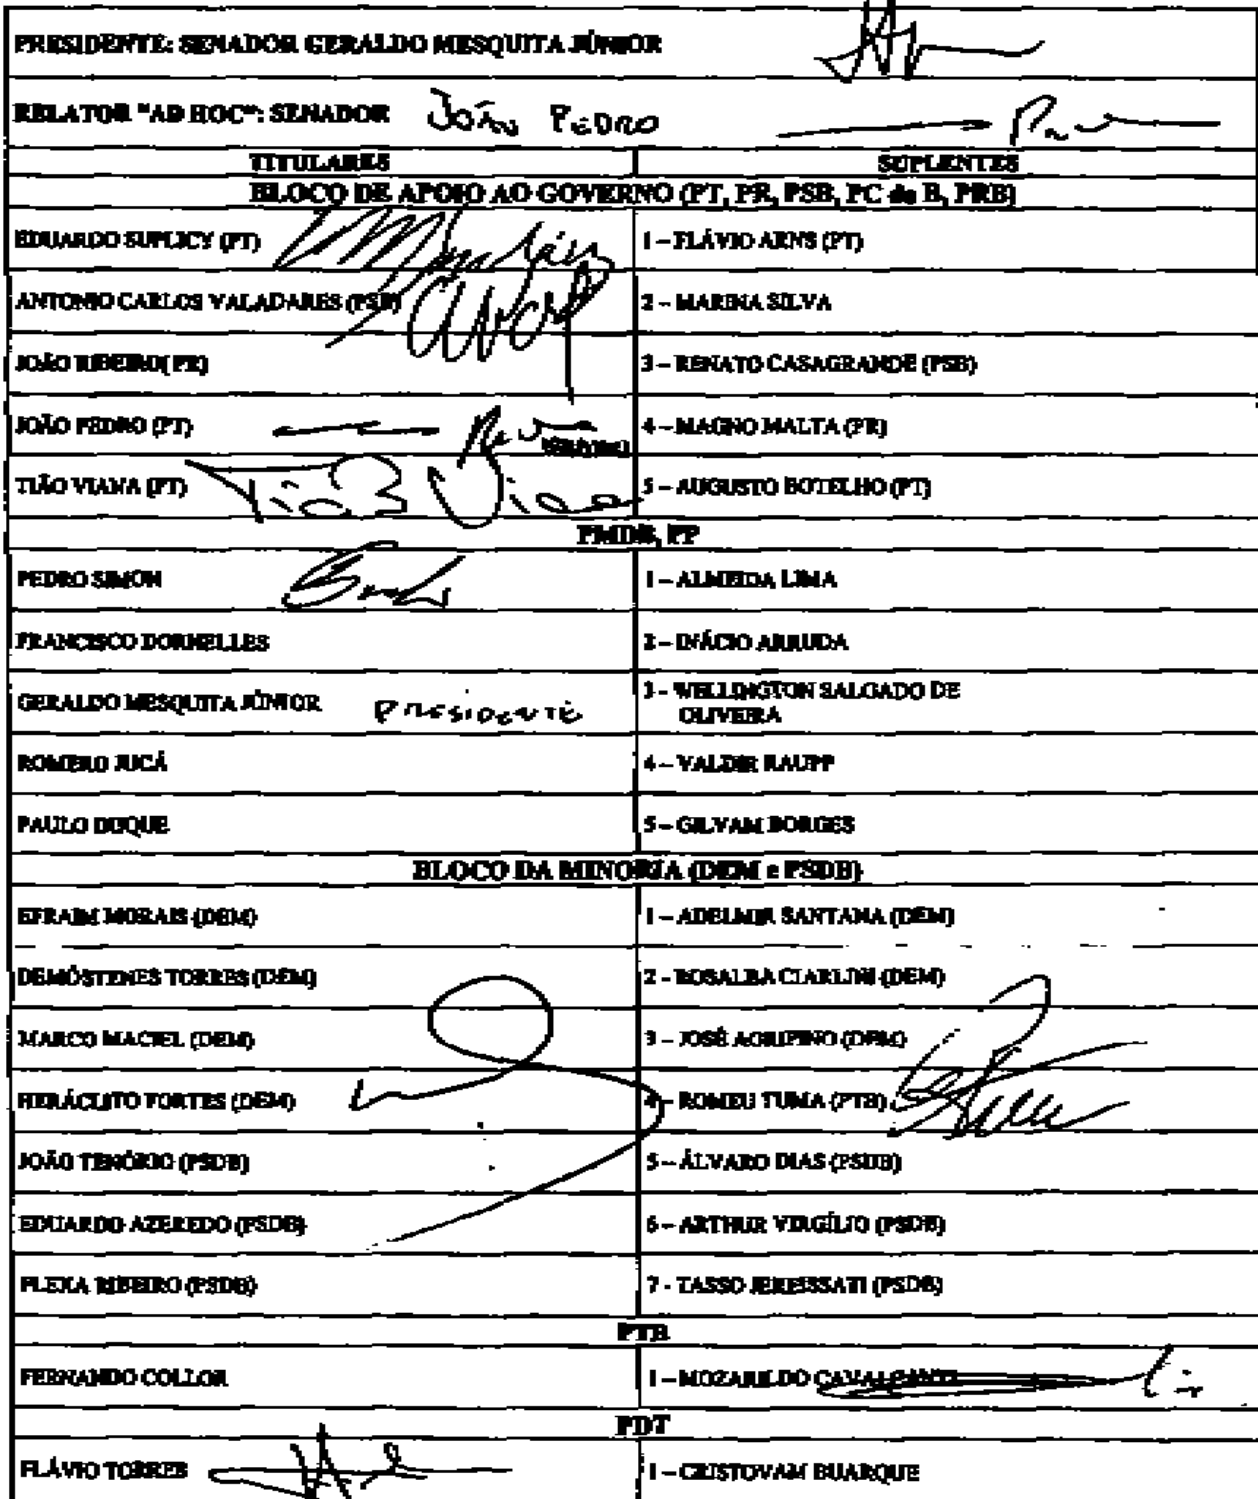 PRESIDENTE: SENADOR GERALDO MESQUITA JÚNIOR
RELATOR "AD HOC": SENADOR JOÃO PEDRO
TITULARES SUPLENTES
BLOCO DE APOIO AO GOVERNO (PT, PR, PSB, PC do B, PRB)
EDUARDO SUPLICY (PT) 1 – FLÁVIO ARNS (PT)
ANTONIO CARLOS VALADARES (PSB) 2 – MARINA SILVA
JOÃO RIBEIRO( PR) 3 – RENATO CASAGRANDE (PSB)
JOÃO PEDRO (PT) 4 – MAGNO MALTA (PR)
TIÃO VIANA (PT) 5 – AUGUSTO BOTELHO (PT)
PMDB, PP
PEDRO SIMON 1 – ALMEIDA LIMA
FRANCISCO DORNELLES 2 – INÁCIO ARRUDA
GERALDO MESQUITA JÚNIOR PRESIDENTE 3 - WELLINGTON SALGADO DE
OLIVEIRA
ROMERO JUCÁ 4 – VALDIR RAUPP
PAULO DUQUE 5 – GILVAM BORGES
BLOCO DA MINORIA (DEM e PSDB)
EFRAIM MORAIS (DEM) 1 – ADELMIR SANTANA (DEM)
DEMÓSTENES TORRES (DEM) 2 - ROSALBA CIARLINI (DEM)
MARCO MACIEL (DEM) 3 – JOSÉ AGRIPINO (DEM)
HERÁCLITO FORTES (DEM) 4 – ROMEU TUMA (PTB)
JOÃO TENÓRIO (PSDB) 5 – ÁLVARO DIAS (PSDB)
EDUARDO AZEREDO (PSDB) 6 – ARTHUR VIRGÍLIO (PSDB)
FLEXA RIBEIRO (PSDB) 7 - TASSO JEREISSATI (PSDB)
PTB
FERNANDO COLLOR 1 – MOZARILDO CAVALCANTI
PDT
FLÁVIO TORRES 1 – CRISTOVAM BUARQUE